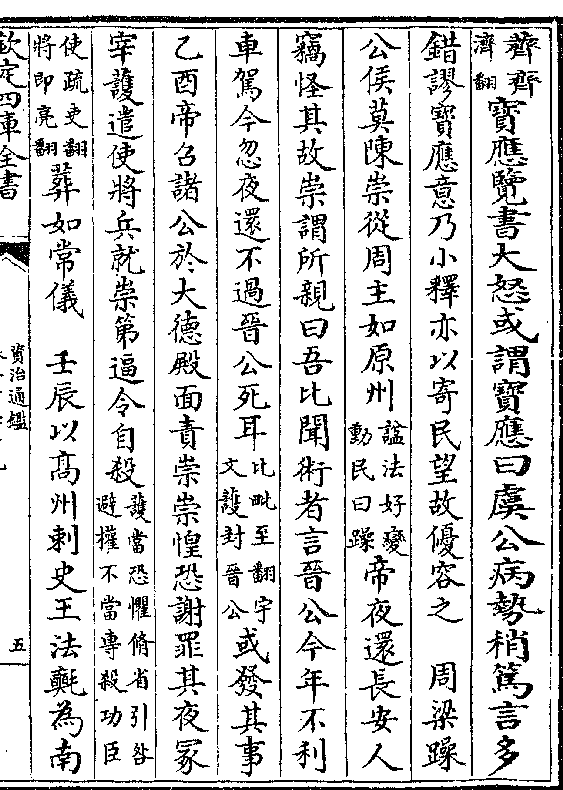 薺齊濟翻寶應覽書大怒或謂寶應曰虞公病勢稍篤言多
錯謬寶應意乃小釋亦以寄民望故優容之　周梁躁
公侯莫陳崇從周主如原州諡法好變動民曰躁帝夜還長安人
竊怪其故崇謂所親曰吾比聞術者言晉公今年不利
車駕今忽夜還不過晉公死耳比毗至翻宇文護封晉公或發其事
乙酉帝召諸公於大德殿面責崇崇惶恐謝罪其夜冢
宰護遣使將兵就崇第逼令自殺護當恐懼脩省引咎避權不當專殺功臣
使疏吏翻將即亮翻葬如常儀　壬辰以高州刺史王法𣰰為南
欽定四庫全書
資治通鑑
五